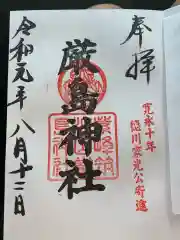 奉拝
寛永十年
徳川家光公寄進
厳島神社
令和元年八月十二日